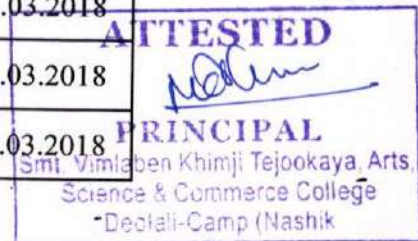 .03.2018
ATTESTED
.03.2018
.03.2018
PRINCIPAL
Smt. Vimlaben Khimji Tejookaya, Arts,
Science & Commerce College
Deolali-Camp (Nashik